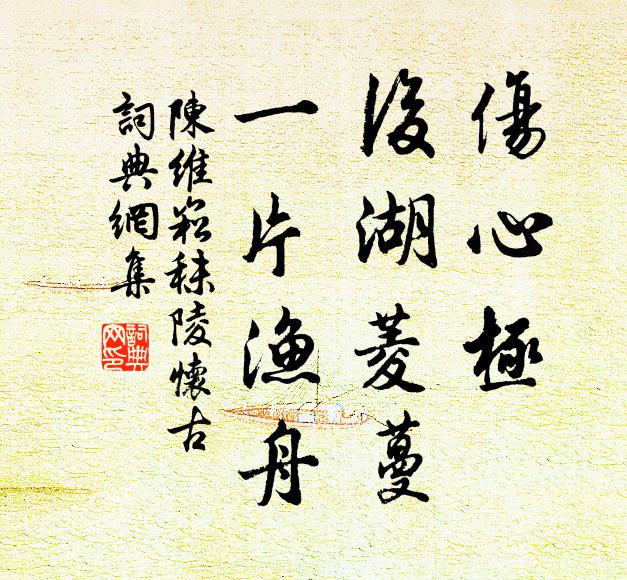 傷心極
後湖菱蔓
一片漁舟
陳維崧秣陵懷古
詞典網集
詞典
网印